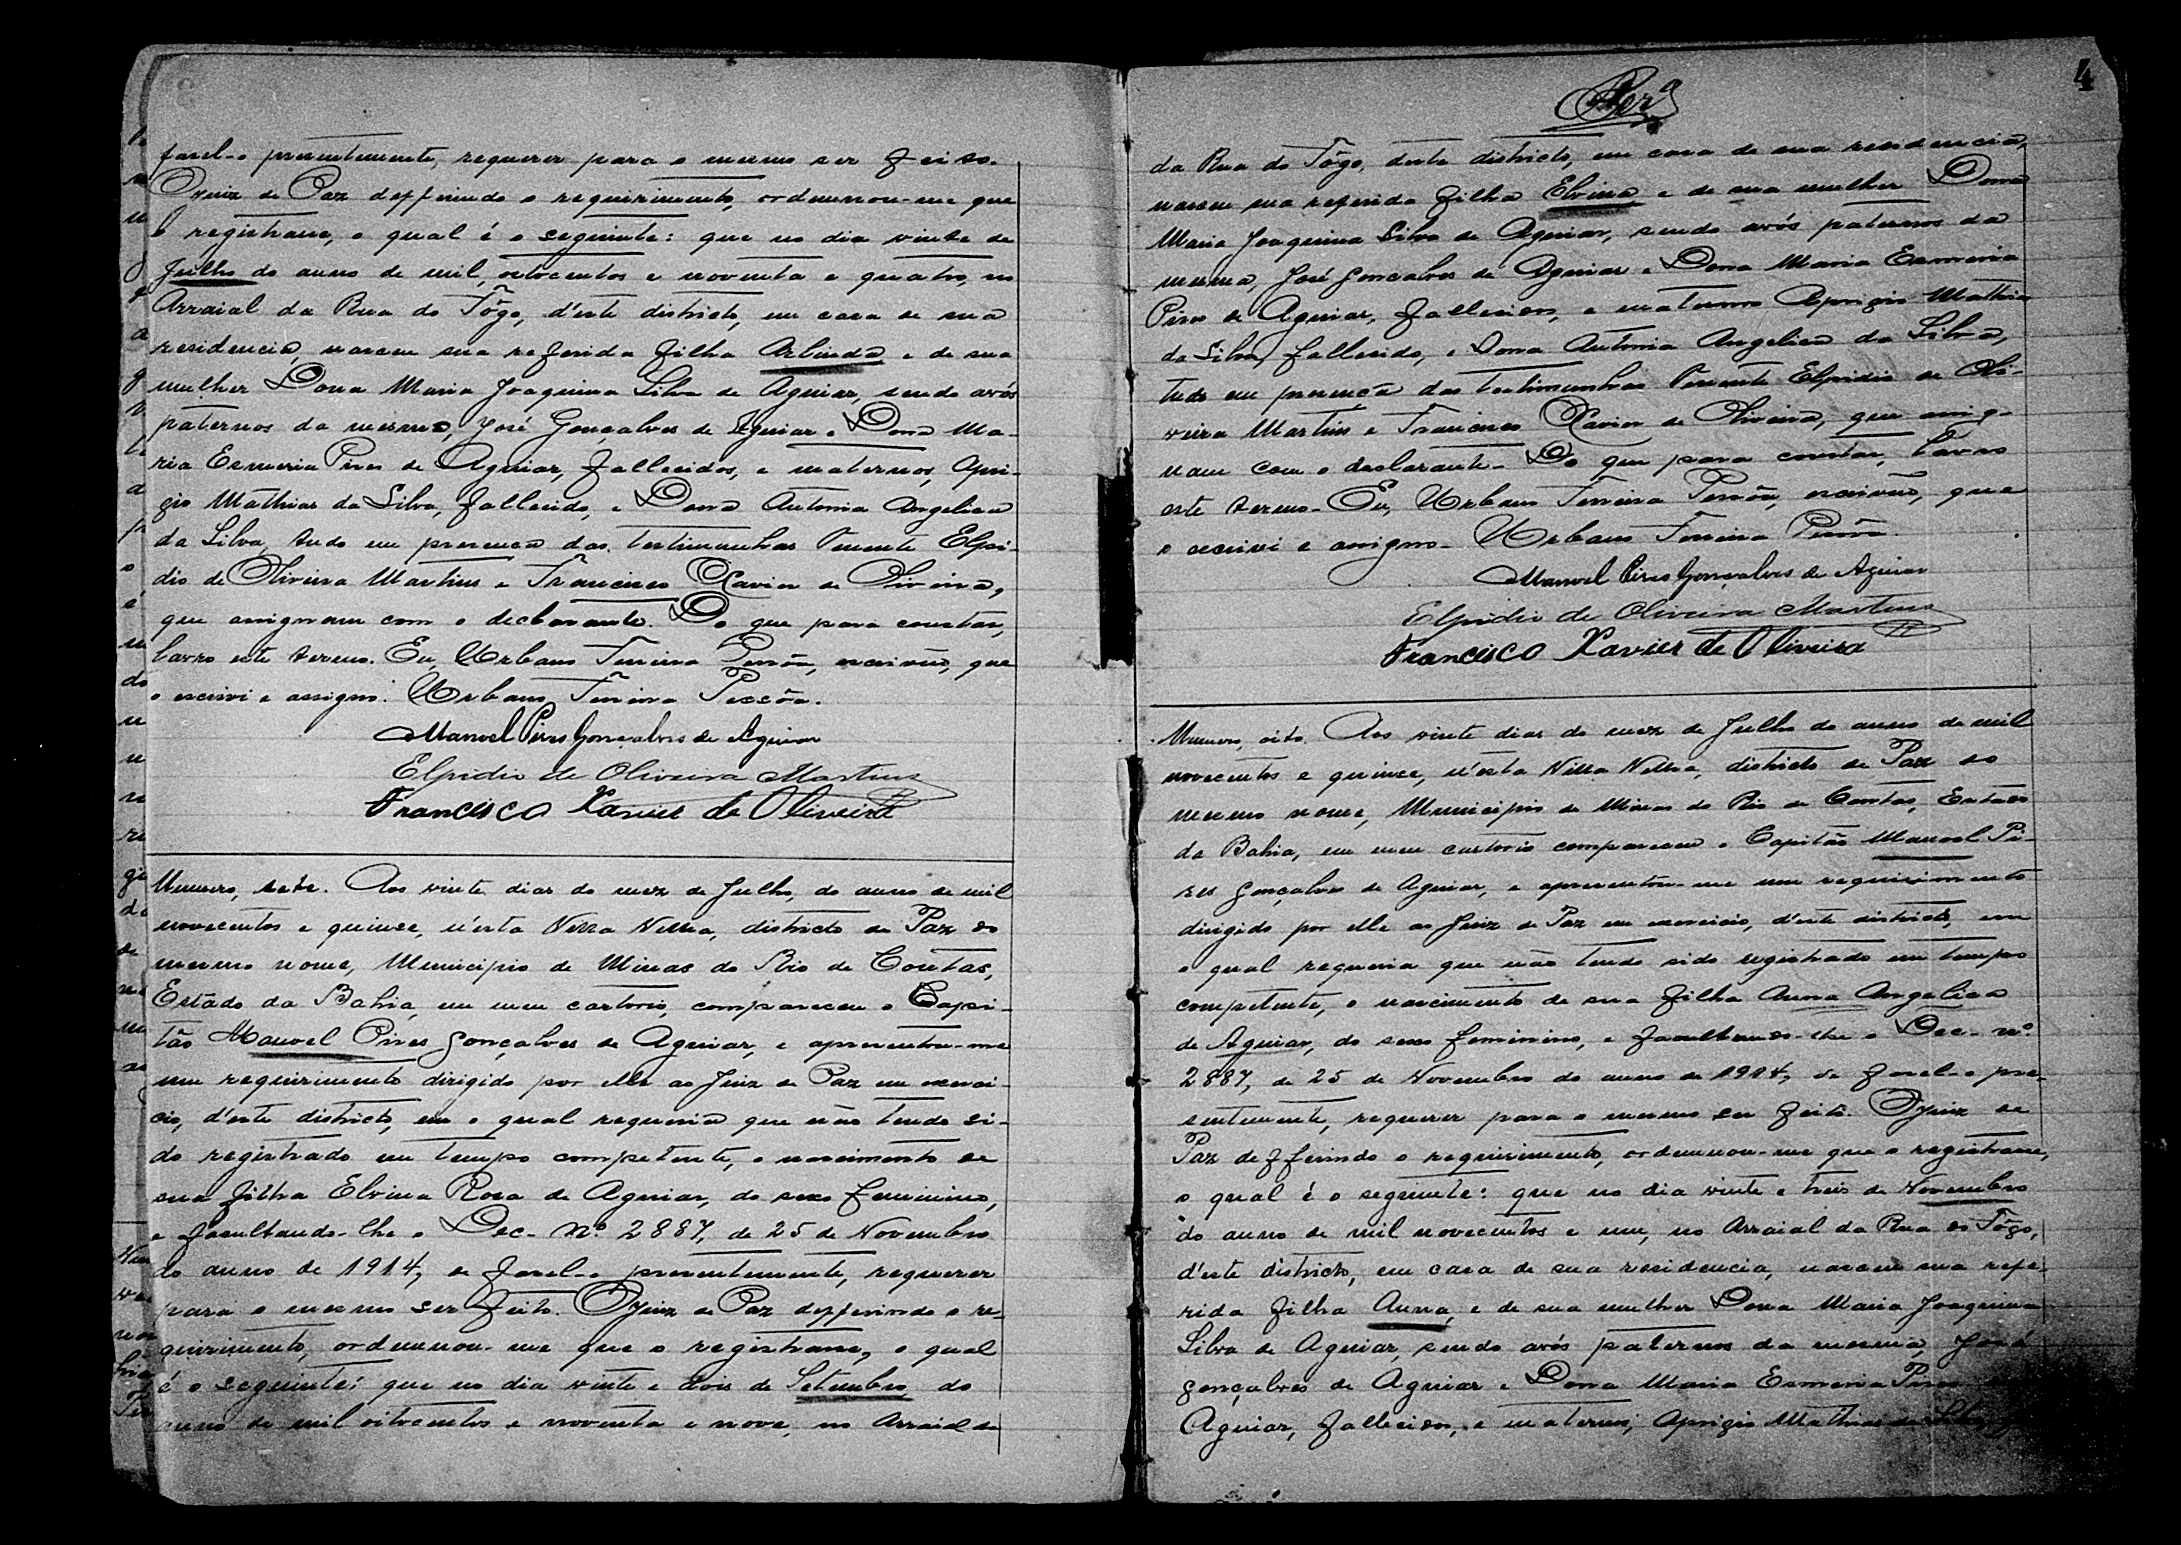 fasel-o presentemente, requerer para o mesmo ser feito.
O Juiz de Paz defferindo o requerimento, ordennou-me que
o registrasse, o qual é o seguinte: que no dia vinte de
Julho do anno de mil, oitocentos e noventa e quatro, no
Arraial da Rua do Fôgo, d'este districto, em casa de sua
residencia, nasceu sua referida filha Arlinda e de sua
mulher Dona Maria Joaquina Silva de Aguiar, sendo avós
paternos da mesma, José Gonçalves de Aguiar e Dona Ma-
ria Esmeria Pires de Aguiar, fallecidos, e maternos, Apri-
gio Mathias da Silva, fallecido, e Dona Antonia Angelica
da Silva, tudo em presença das testimunhas Tenente Elpi-
dio de Oliveira Martins e Francisco Xavier de Oliveira,
que assignam com o declarante. Do que para constar,
lavro este termo. Eu, Urbano Ferreira Pessôa, escrivão, que
o escrivi e assigno. Urbano Ferreira Pessôa.
Manoel Pires Gonçalves de Aguiar
Elpidio de Oliveira Martins
Francisco Xavier de Oliveira
Numero, sete. Aos vinte dias do mez de Julho, do anno de mil
novecentos e quinse, n'esta Villa Velha, districto de Paz do
mesmo nome, Municipio de Minas do Rio de Contas,
Estado da Bahia, em meu cartorio, compareceu o Capi-
tão Manoel Pires Gonçalves de Aguiar, e apresentou-me
um requirimento dirigido por elle ao Juiz de Paz em exerci-
cio, d'este districto, em o qual requeria que não tendo si-
do registrado em tempo competente, o nascimento de
sua filha Elvina Rosa de Aguiar, do sexo feminino,
e facultando-lhe o Dec. nº 2887, de 25 de Novembro
do anno de 1914, de fasel-o presentemente, requerer
para o mesmo ser feito. O Juiz de Paz defferindo o re-
quirimento, ordennou-me que o registrasse, o qual
é o seguinte: que no dia vinte e dois de Setembro do
anno de mil oitocentos e noventa e nove, no Arraial da
4
da Rua do Fôgo, deste districto, em casa de sua residencia,
nasceu sua referida filha Elvina e de sua mulher Dona
Maria Joaquina Silva de Aguiar, sendo avós paternos da
mesma, José Gonçalves de Aguiar e Dona Maria Esmeria
Pires de Aguiar, fallecidos, e maternos Aprigio Mathias
da Silva, fallecido, e Dona Antonia Angelica da Silva,
tudo em presença das testimunhas Tenente Elpidio de Oli-
veira Martins e Francisco Xavier de Oliveira, que assig-
nam com o declarante. Do que para constar, lavro
este termo. Eu, Urbano Ferreira Pessôa, escrivão, que
o escrivi e assigno. Urbano Ferreira Pessôa.
Manoel Pires Gonçalves de Aguiar
Elpidio de Oliveira Martins
Francisco Xavier de Oliveira
Numero, oito. Aos vinte dias do mez de Julho do anno de mil
novecentos e quinse, n'esta Villa Velha, districto de Paz do
mesmo nome, Municipio de Minas do Rio de Contas, Estado
da Bahia, em meu cartorio compareceu o Capitão Manoel Pi-
res Gonçalves de Aguiar, e apresentou-me um requirimento
dirigido por elle ao Juiz de Paz em exercicio, d'este districto, em
o qual requeria que não tendo sido registrado em tempo
competente, o nascimento de sua filha Anna Angelica
de Aguiar, do sexo feminino, e facultando-lhe o Dec. nº
2887, de 25 de Novembro do anno de 1914, de fasel-o pre-
sentemente, requerer para o mesmo ser feito. O Juiz de
Paz defferindo o requirimento, ordennou-me que o registrasse,
o qual é o seguinte: que no dia vinte e treis de Novembro
do anno de mil novecentos e um, no Arraial da Rua do Fôgo,
d'este districto, em casa de sua residencia, nasceu sua refe-
rida filha Anna, e de sua mulher Dona Maria Joaquina
Silva de Aguiar, sendo avós paternos da mesma, José
Gonçalves de Aguiar e Dona Maria Esmeria Pires
Aguiar, fallecidos, e maternos, Aprigio Mathias da Silva